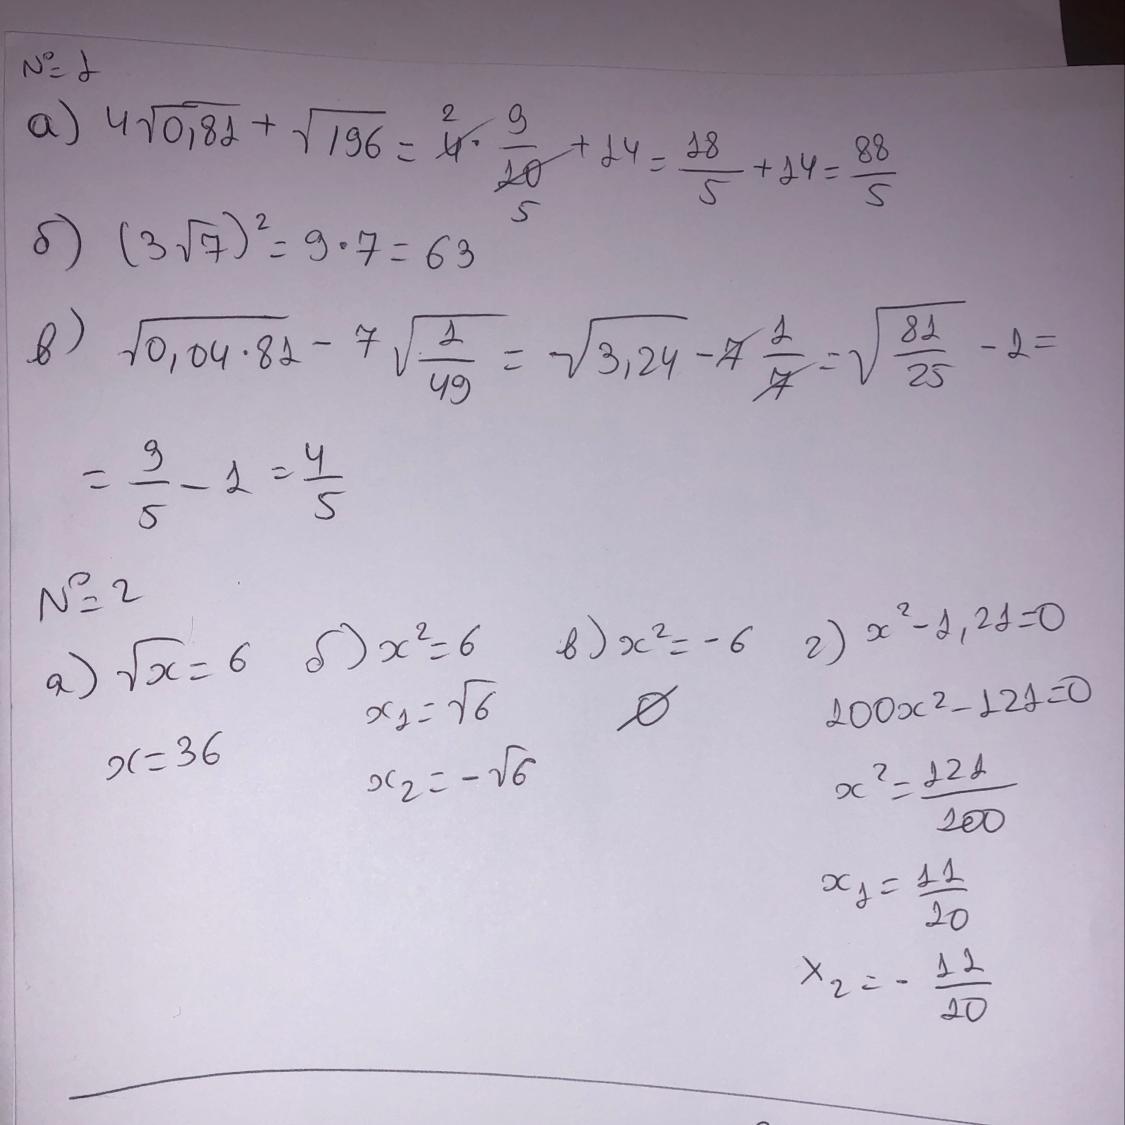 № 1
а) 4√0,81 + √196 = 4 · 9/10 + 14 = 18/5 + 14 = 88/5
2
5
б) (3√7)² = 9 · 7 = 63
в) √0,04 · 81 - 7√1/49 = √3,24 - 7 1/7 = √81/25 - 1 =
= 9/5 - 1 = 4/5
№ 2
а) √x = 6
x = 36
б) x² = 6
x₁ = √6
x₂ = -√6
в) x² = -6
∅
г) x² - 1,21 = 0
100x² - 121 = 0
x² = 121/100
x₁ = 11/10
x₂ = - 11/10